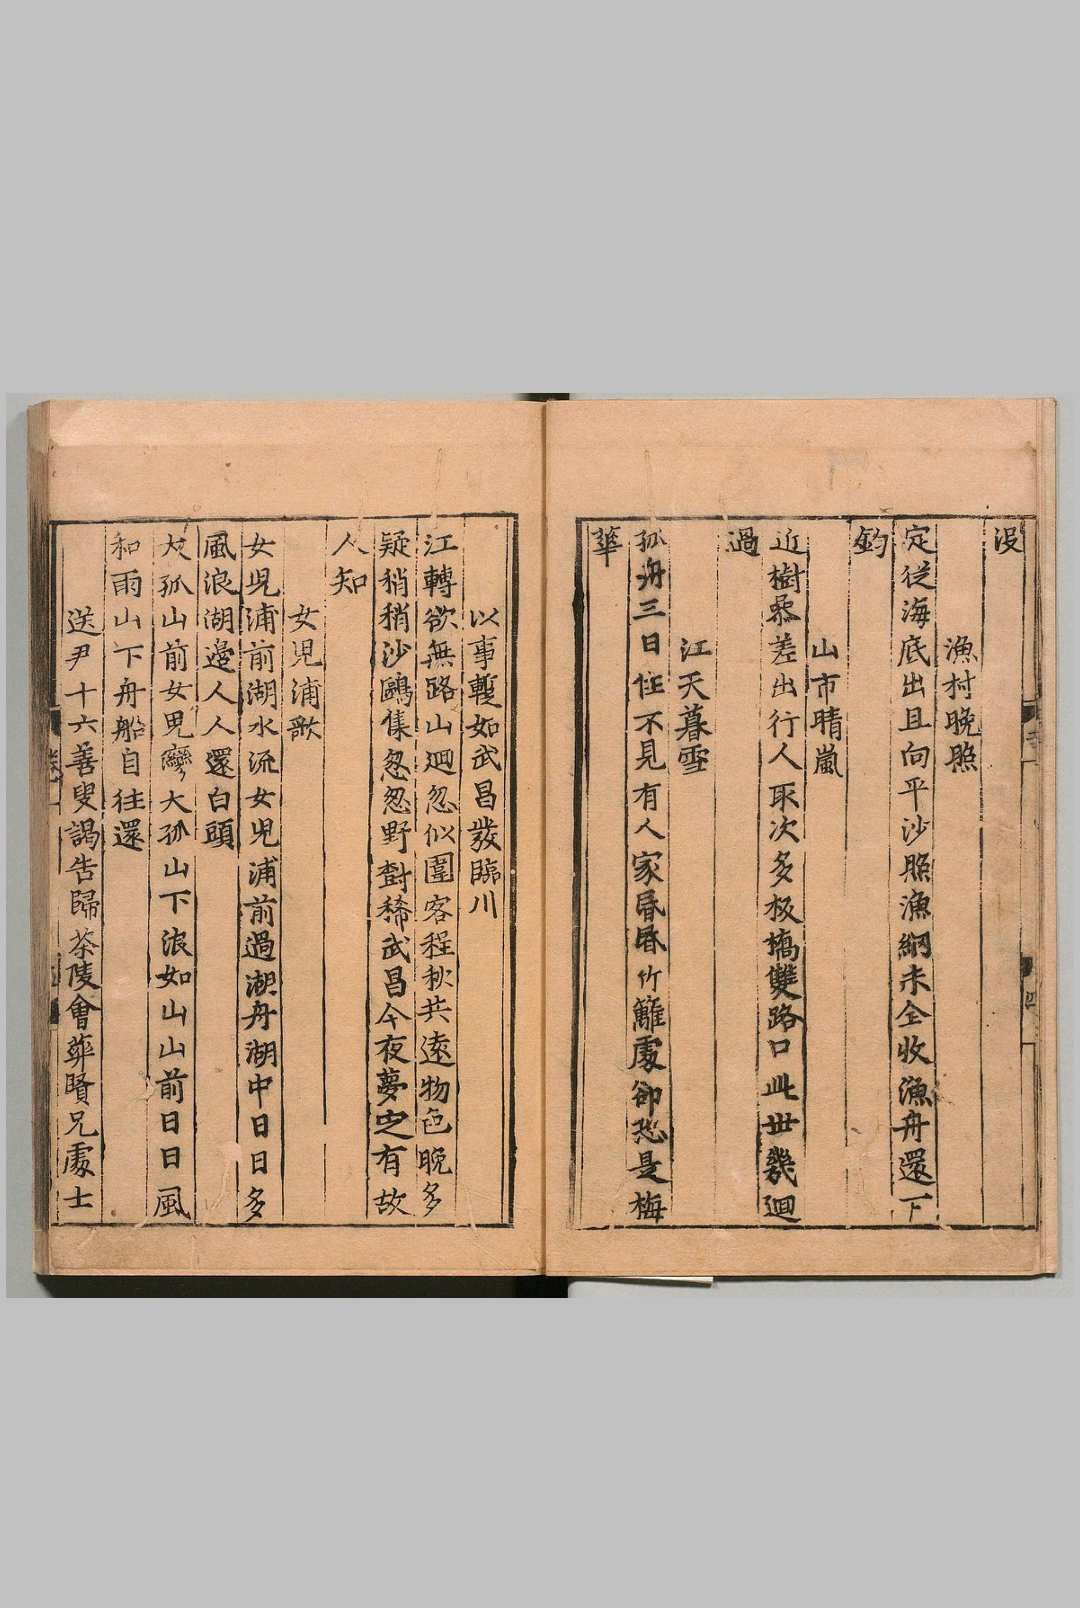 沒
漁村晚照
定從海底出且向平沙照漁網未全收漁舟還下
釣
山市晴嵐
近樹參差出行人取次多板橋雙路口此世幾迴
過
江天暮雪
孤舟三日住不見有人家昏昏竹籬處卻恐是梅
華
以事蹔如武昌發臨川
江轉欲無路山迴忽似圍客程秋共遠物色晚多
疑稍稍沙鷗集怱怱野樹稀武昌今夜夢定有故
人知
女兒浦歌
女兒浦前湖水流女兒浦前過湖舟湖中日日多
風浪湖邊人人還白頭
大孤山前女兒灣大孤山下浪如山山前日日風
和雨山下舟船自往還
送尹十六善叟謁告歸茶陵會葬賢兄處士